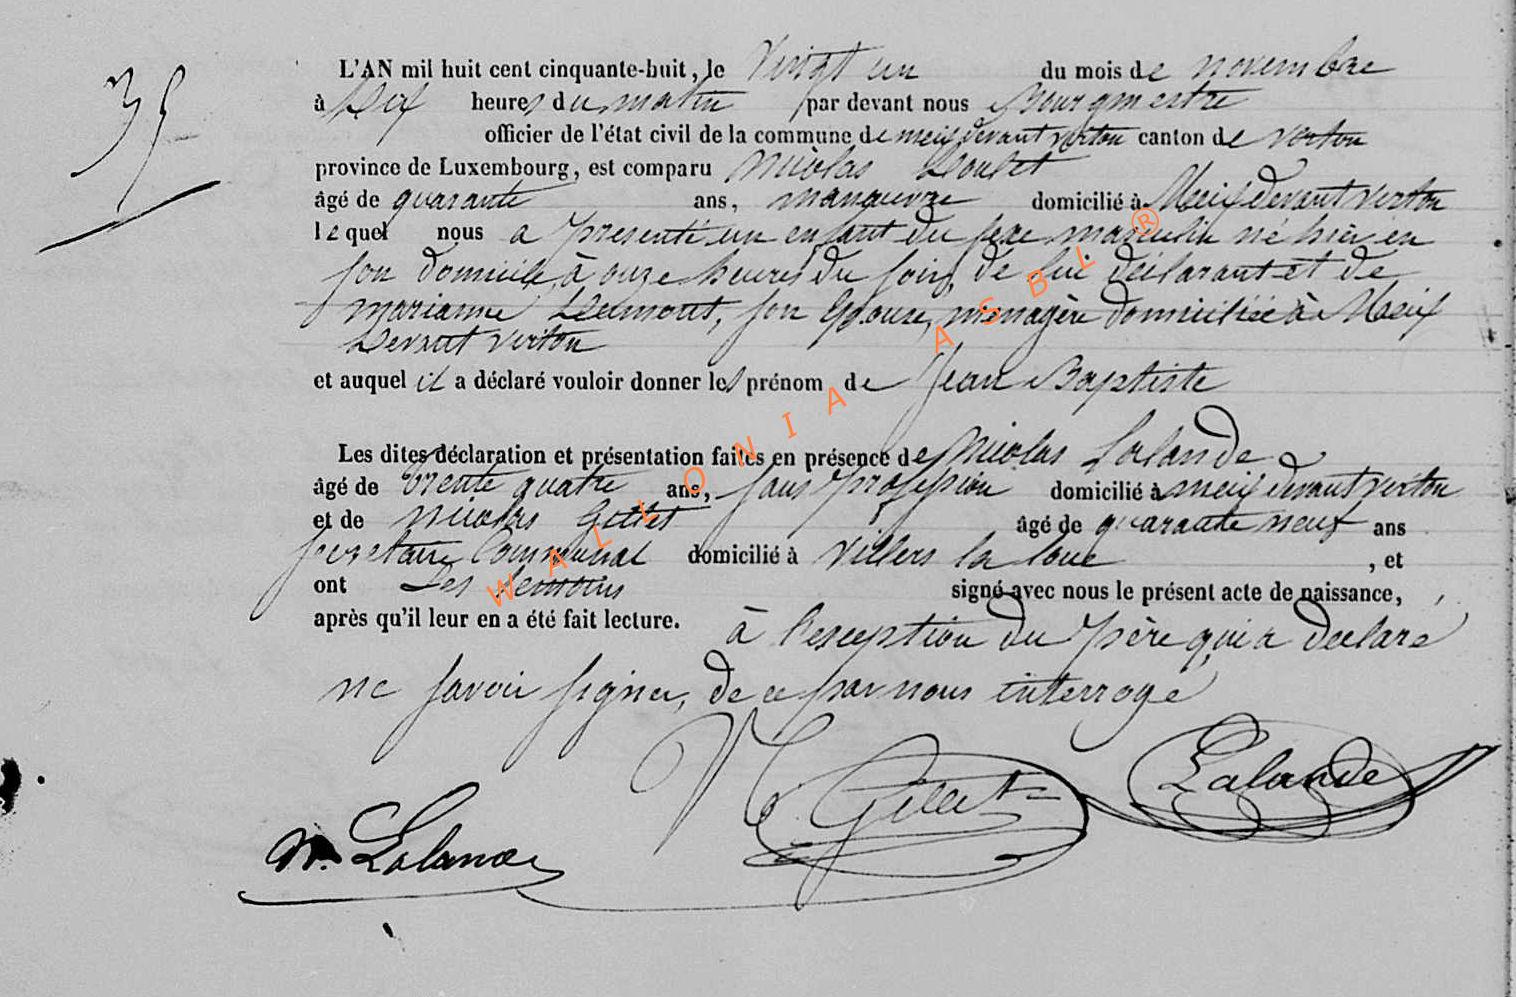 35
L'AN mil huit cent cinquante-huit, le Vingt un du mois de novembre
à Dix heures du matin par devant nous Bourgmestre
officier de l'état civil de la commune de meix devant virton canton de virton
province de Luxembourg, est comparu Nicolas
âgé de quarante ans, manœuvre domicilié à Meix devant virton
lequel nous a présenté un enfant du sexe masculin né hier en
son domicile, à onze heures du soir, de lui déclarant et de
marianne son Epouse, ménagère domiciliée à Meix
Devant virton
et auquel il a déclaré vouloir donner les prénom de Jean Baptiste
Les dites déclaration et présentation faites en présence de Nicolas Lalande
âgé de trente quatre ans, sans profession domicilié à meix devant virton
et de Nicolas Gillet âgé de quarante neuf ans
secretaire Communal domicilié à Villers la loue , et
ont Les temoins signé avec nous le présent acte de naissance,
après qu'il leur en a été fait lecture. à l'exception du père qui a declaré
ne savoir signer, de ce par nous interrogé
N. Lalande
N Gillet
Lalande
WALLONIA ASBL ®